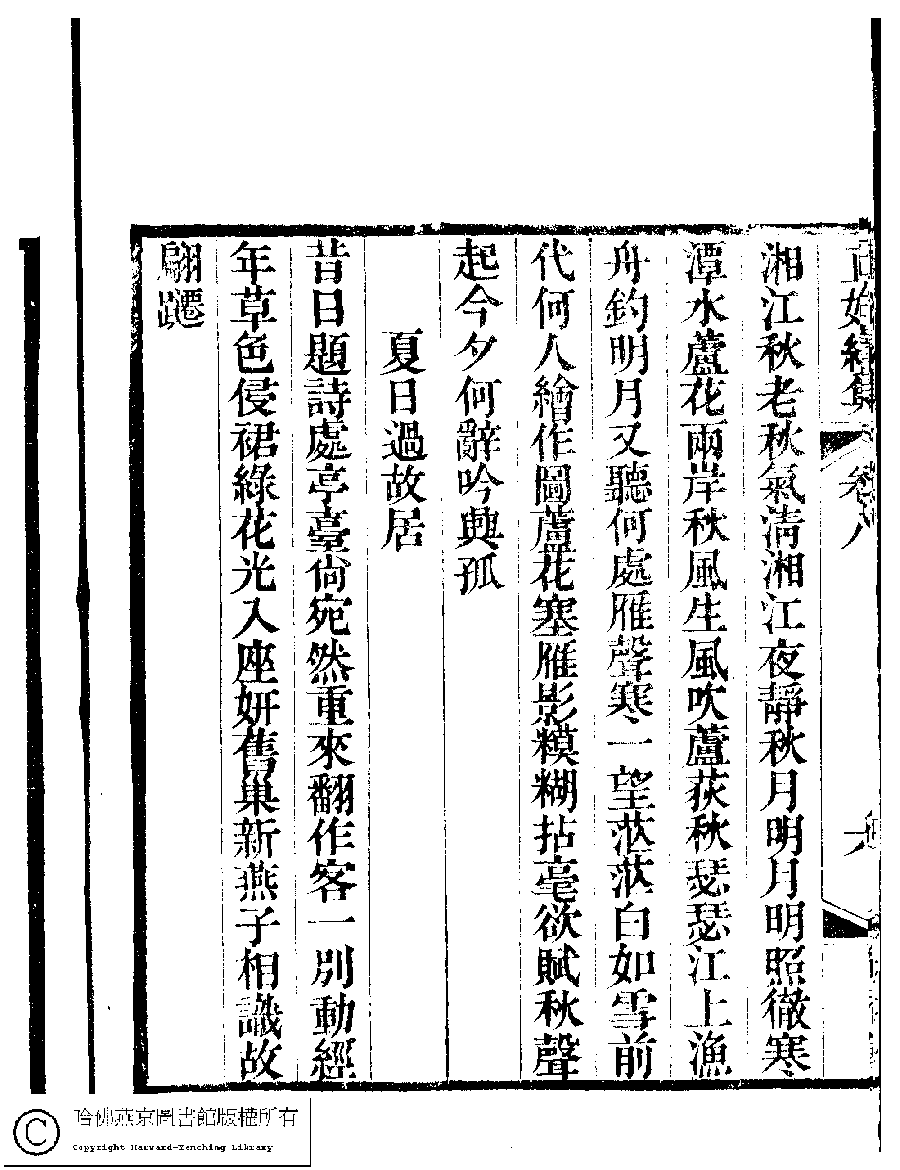 正始續集 卷八
湘江秋老秋氣淸湘江夜靜秋月明月明照徹寒
潭水蘆花兩岸秋風生風吹蘆荻秋瑟瑟江上漁
舟釣明月又聽何處雁聲寒一望茫茫白如雪前
代何人繪作圖蘆花塞雁影糢糊拈毫欲賦秋聲
起今夕何辭吟興孤
夏日過故居
昔日題詩處亭臺尙宛然重來翻作客一別動經
年草色侵裙綠花光入座姸舊巢新燕子相識故
翩躚
哈佛燕京圖書館版權所有
Copyright Harvard-Yenching Library